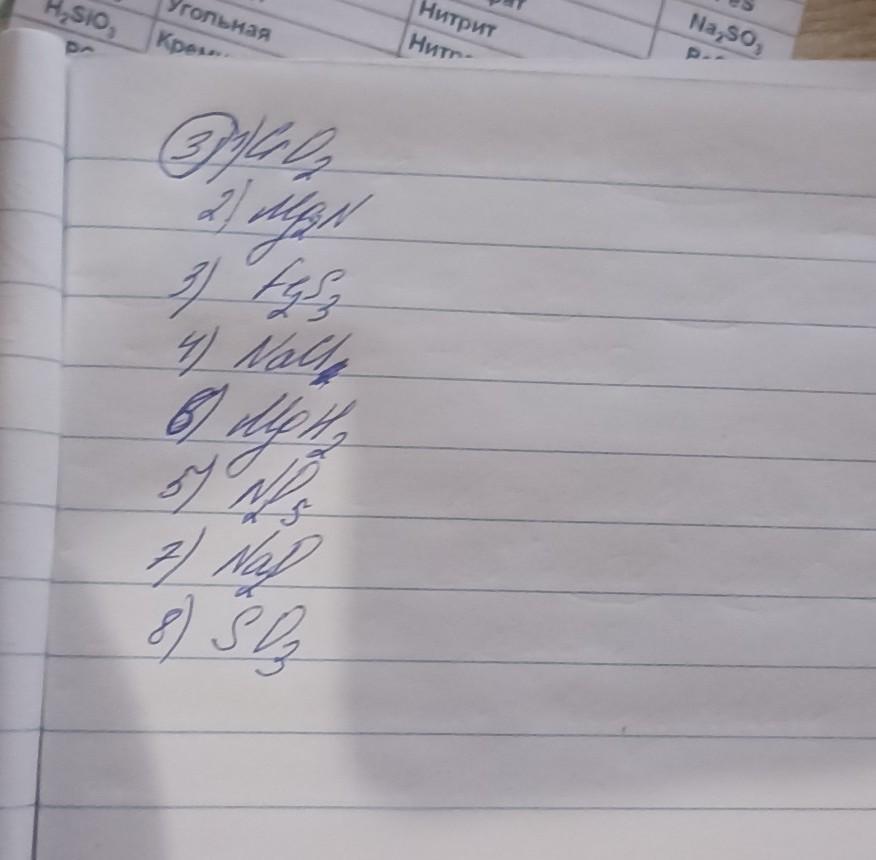 H₂SiO₃ Угольная Нитрит Na₂SO₃
③ 1) CrO₂
2) Mg₃N₂
3) Fe₂S₃
4) NaCl
6) MgH₂
5) N₂O₅
7) Na₂O
8) SO₃